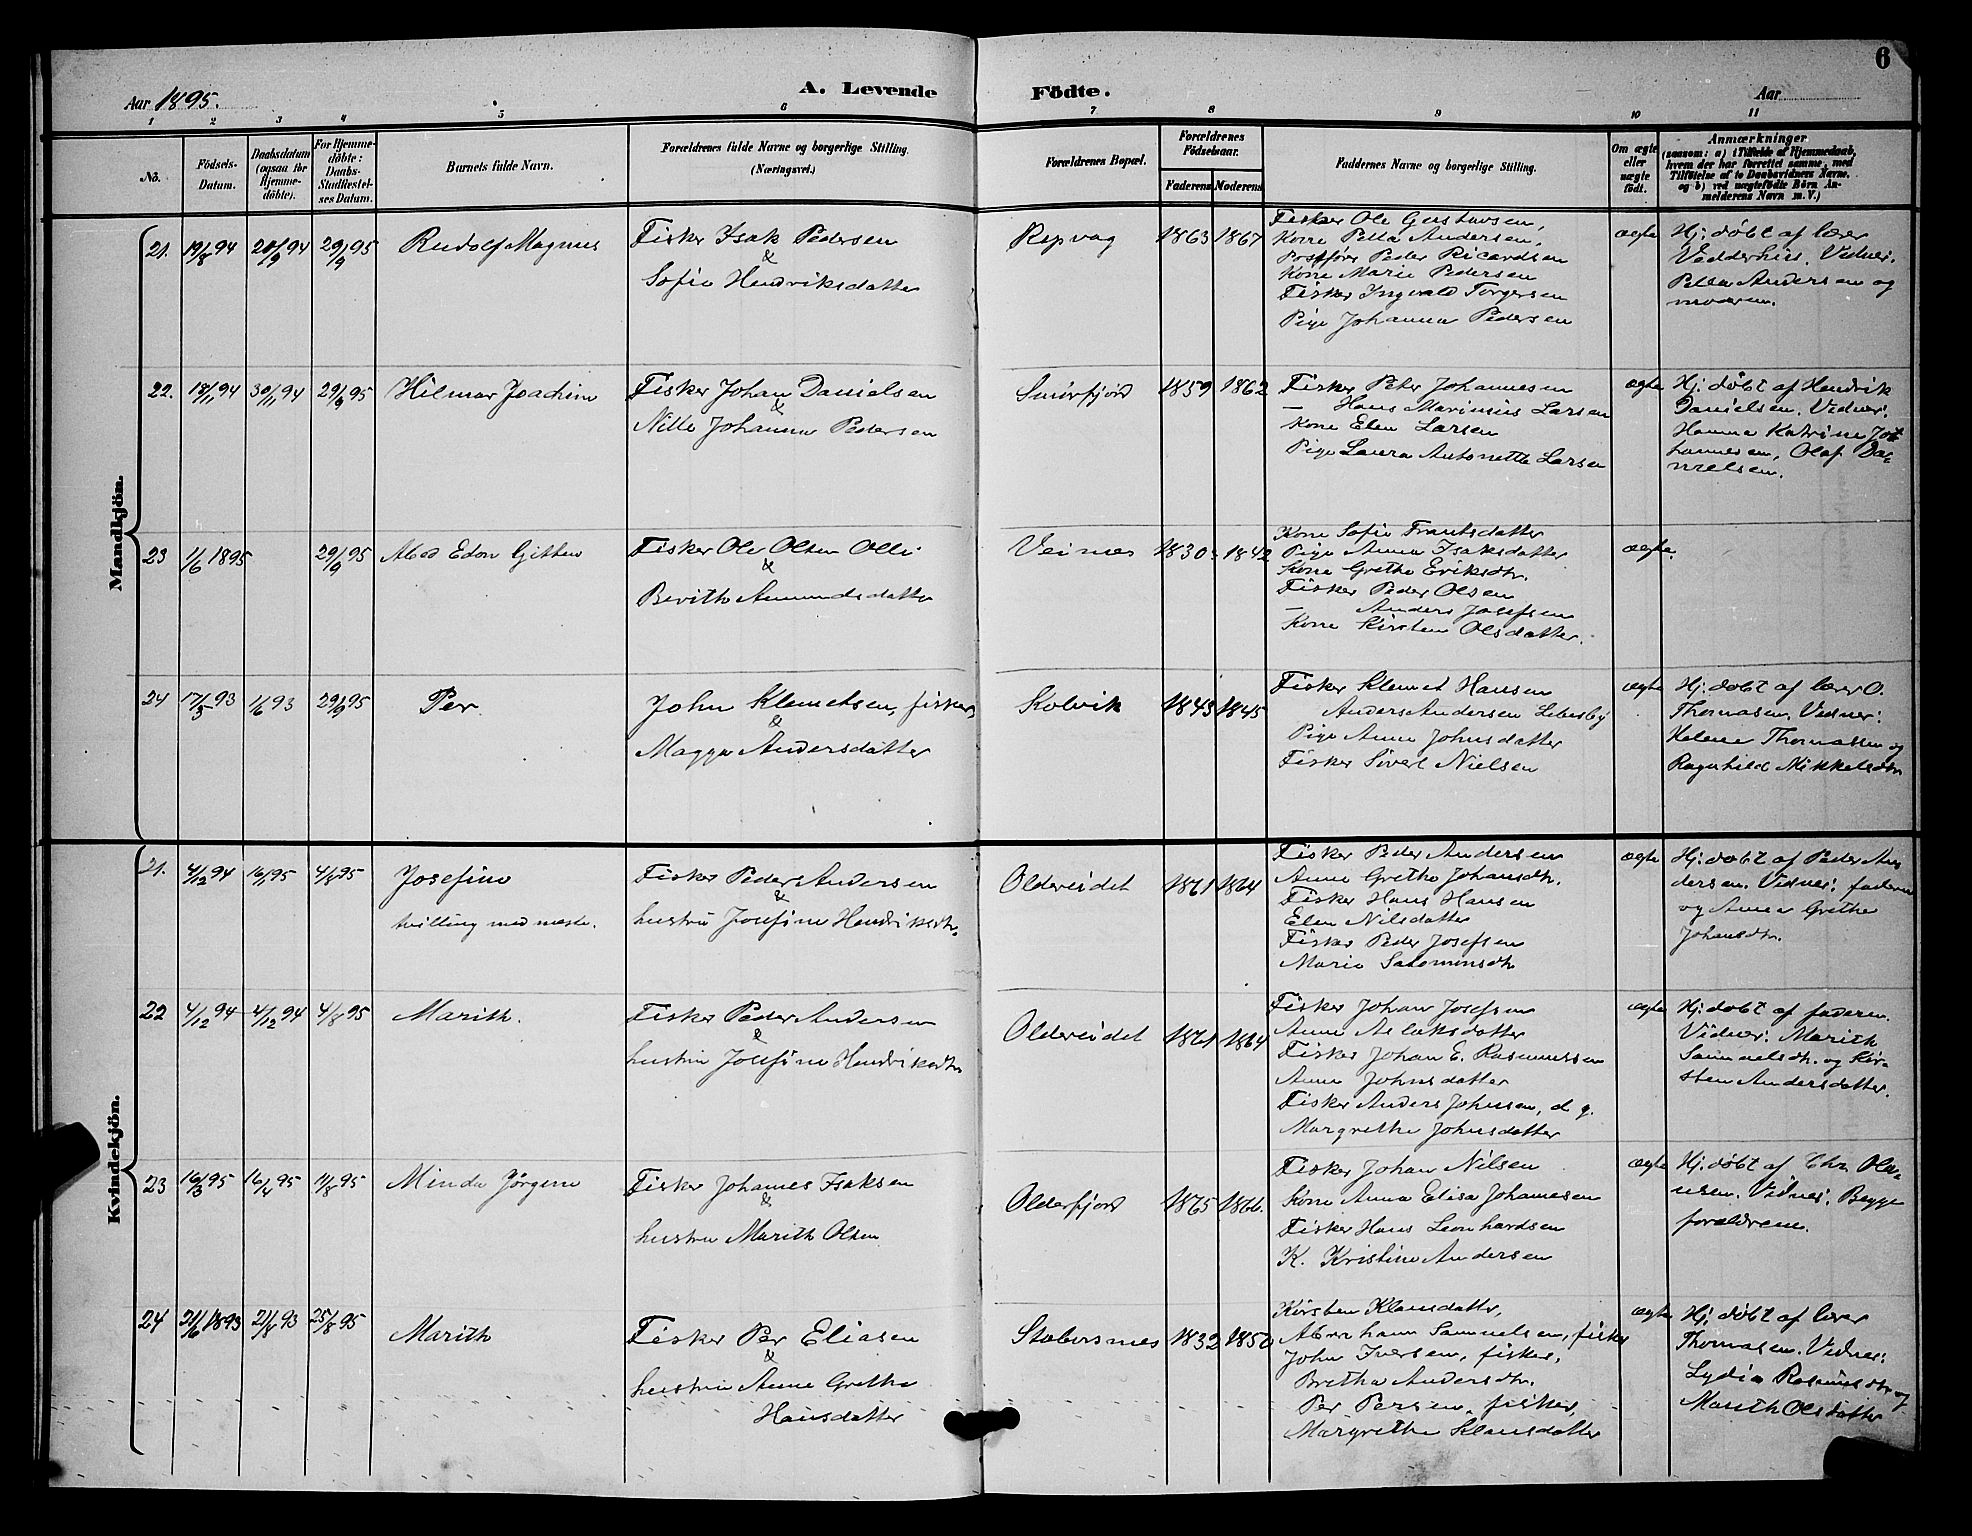 6
Aar 1895.
A. Levende Födte.
Aar
1 2 3 4 5 6 7 8 9 10 11
No.
Födsels-
Datum.
Daabsdatum
(ogsaa for
Hjemme-
döbte).
For Hjemme-
döbte:
Daabs-
Stadfæstel-
ses Datum.
Barnets fulde Navn.
Forældrenes fulde Navne og borgerlige Stilling.
(Næringsvei.)
Forældrenes Bopæl.
Forældrenes
Födselsaar.
Faderens Moderens
Faddernes Navne og borgerlige Stilling.
Om ægte
eller
uægte
födt.
Anmærkninger
(saasom: a) i Tilfælde af Hjemmedaab,
hvem der har forrettet samme, med
Tilföielse af to Daabsvidners Navne.
og b) ved uægtefödte Börn An-
melderens Navn m. V.)
Mandkjön.
21. 19/8 94 20/9 94 29/9 95
Rudolf Magnus
Fisker Isak Pedersen
&
Sofie Hendriksdatter
Repvog
1863 1867
Fisker Ole Gustavsen,
Kone Petra Andersen,
Postfører Peder Ricardsen
Kone Marie Pedersen
Fisker Ingvald Torgersen
Pige Johanna Pedersen
ægte
Hj. døbt af lærer
Vidner:
Petra Andersen og
moderen.
22. 18/11 94 30/11 94 29/9 95
Hilmar Joachim
Fisker Johan Danielsen
&
Nille Johanna Pedersen
Smörfjord
1859 1862
Fisker Peter Johannesen
— Hans Marinius Larsen
Kone Elen Larsen
Pige Laura Antonette Larsen
ægte
Hj. døbt af Hendrik
Danielsen. Vidner:
Hanna Katrine Jo-
hannesen, Olaf Da-
nielsen.
23 1/6 1895 29/9 95
Fisker Ole Olsen Olli
&
Berith Amundsdatter
Veines
1830 1842
Kone Sofie Frantsdatter
Pige Anna Isaksdatter
Kone Grethe Eriksdtr.
Fisker Peder Olsen
— Anders Josefsen
Kone Kirsten Olsdatter.
ægte.
24 17/5 93 1/6 93 29/9 95
Per
John Klemetsen, fisker,
&
Magga Andersdatter
Kolvik
1843 1845
Fisker Klemet Hansen
Anders Andersen Lebesby
Pige Anna Johnsdatter
Fisker Sivert Nielsen
ægte
Hj. døbt af lærer O.
Thomasen. Vidner:
Helene Thomassen og
Ragnhild Mikkelsdtr.
Kvindekjön.
21. 4/12 94 16/1 95 4/8 95
Josefine
tvilling med næste.
Fisker Peder Andersen
&
hustru Josefine Hendriksdtr.
Oldereidet
1861 1864
Fisker Peder Andersen
Anne Grethe Johansdtr.
Fisker Hans Hansen
Elen Nilsdatter
Fisker Peder Josefsen
Marie Salomonsdtr
ægte
Hj. døbt af Peder An-
dersen. Vidner: faderen
og Anna Grethe
Johansdtr.
22 4/12 94 4/12 94 4/8 95
Marith.
Fisker Peder Andersen
&
hustru Josefine Hendriksdtr
Oldereidet
1861 1864
Fisker Johan Josefsen
Anne Aslaksdatter
Fisker Johan E. Rasmussen
Anne Johnsdatter
Fisker Anders Johnsen, d. y.
Margrethe Johnsdatter
ægte
Hj. døbt af faderen.
Vidner: Marith
Samuelsdtr. og Kir-
sten Andersdatter.
23 16/3 95 16/4 95 11/8 95
Minda Jörgine
Fisker Johannes Isaksen
&
hustru Marith Olsen
Olderfjord
1865 1866.
Fisker Johan Nilsen
Kone Anna Elisa Johannesen
Fisker Hans Leonhardsen
K. Kristine Andersen
ægte
Hj. døbt af Chr. Ola-
usen. Vidner: Begge
forældrene.
24 21/6 1893 21/8 93 25/8 95
Marith
Fisker Per Eliasen
&
hustru Anne Grethe
Hansdatter
Stabursnes
1832 1850
Kirsten Klausdatter,
Abraham Samuelsen, fisker
John Iversen, fisker,
Bretha Andersdtr.
Per Persen, fisker,
Margrethe Klausdatter
ægte
Hj. døbt af lærer
Thomasen. Vidner:
Lydia Rasmusdtr og
Marith Olsdatter